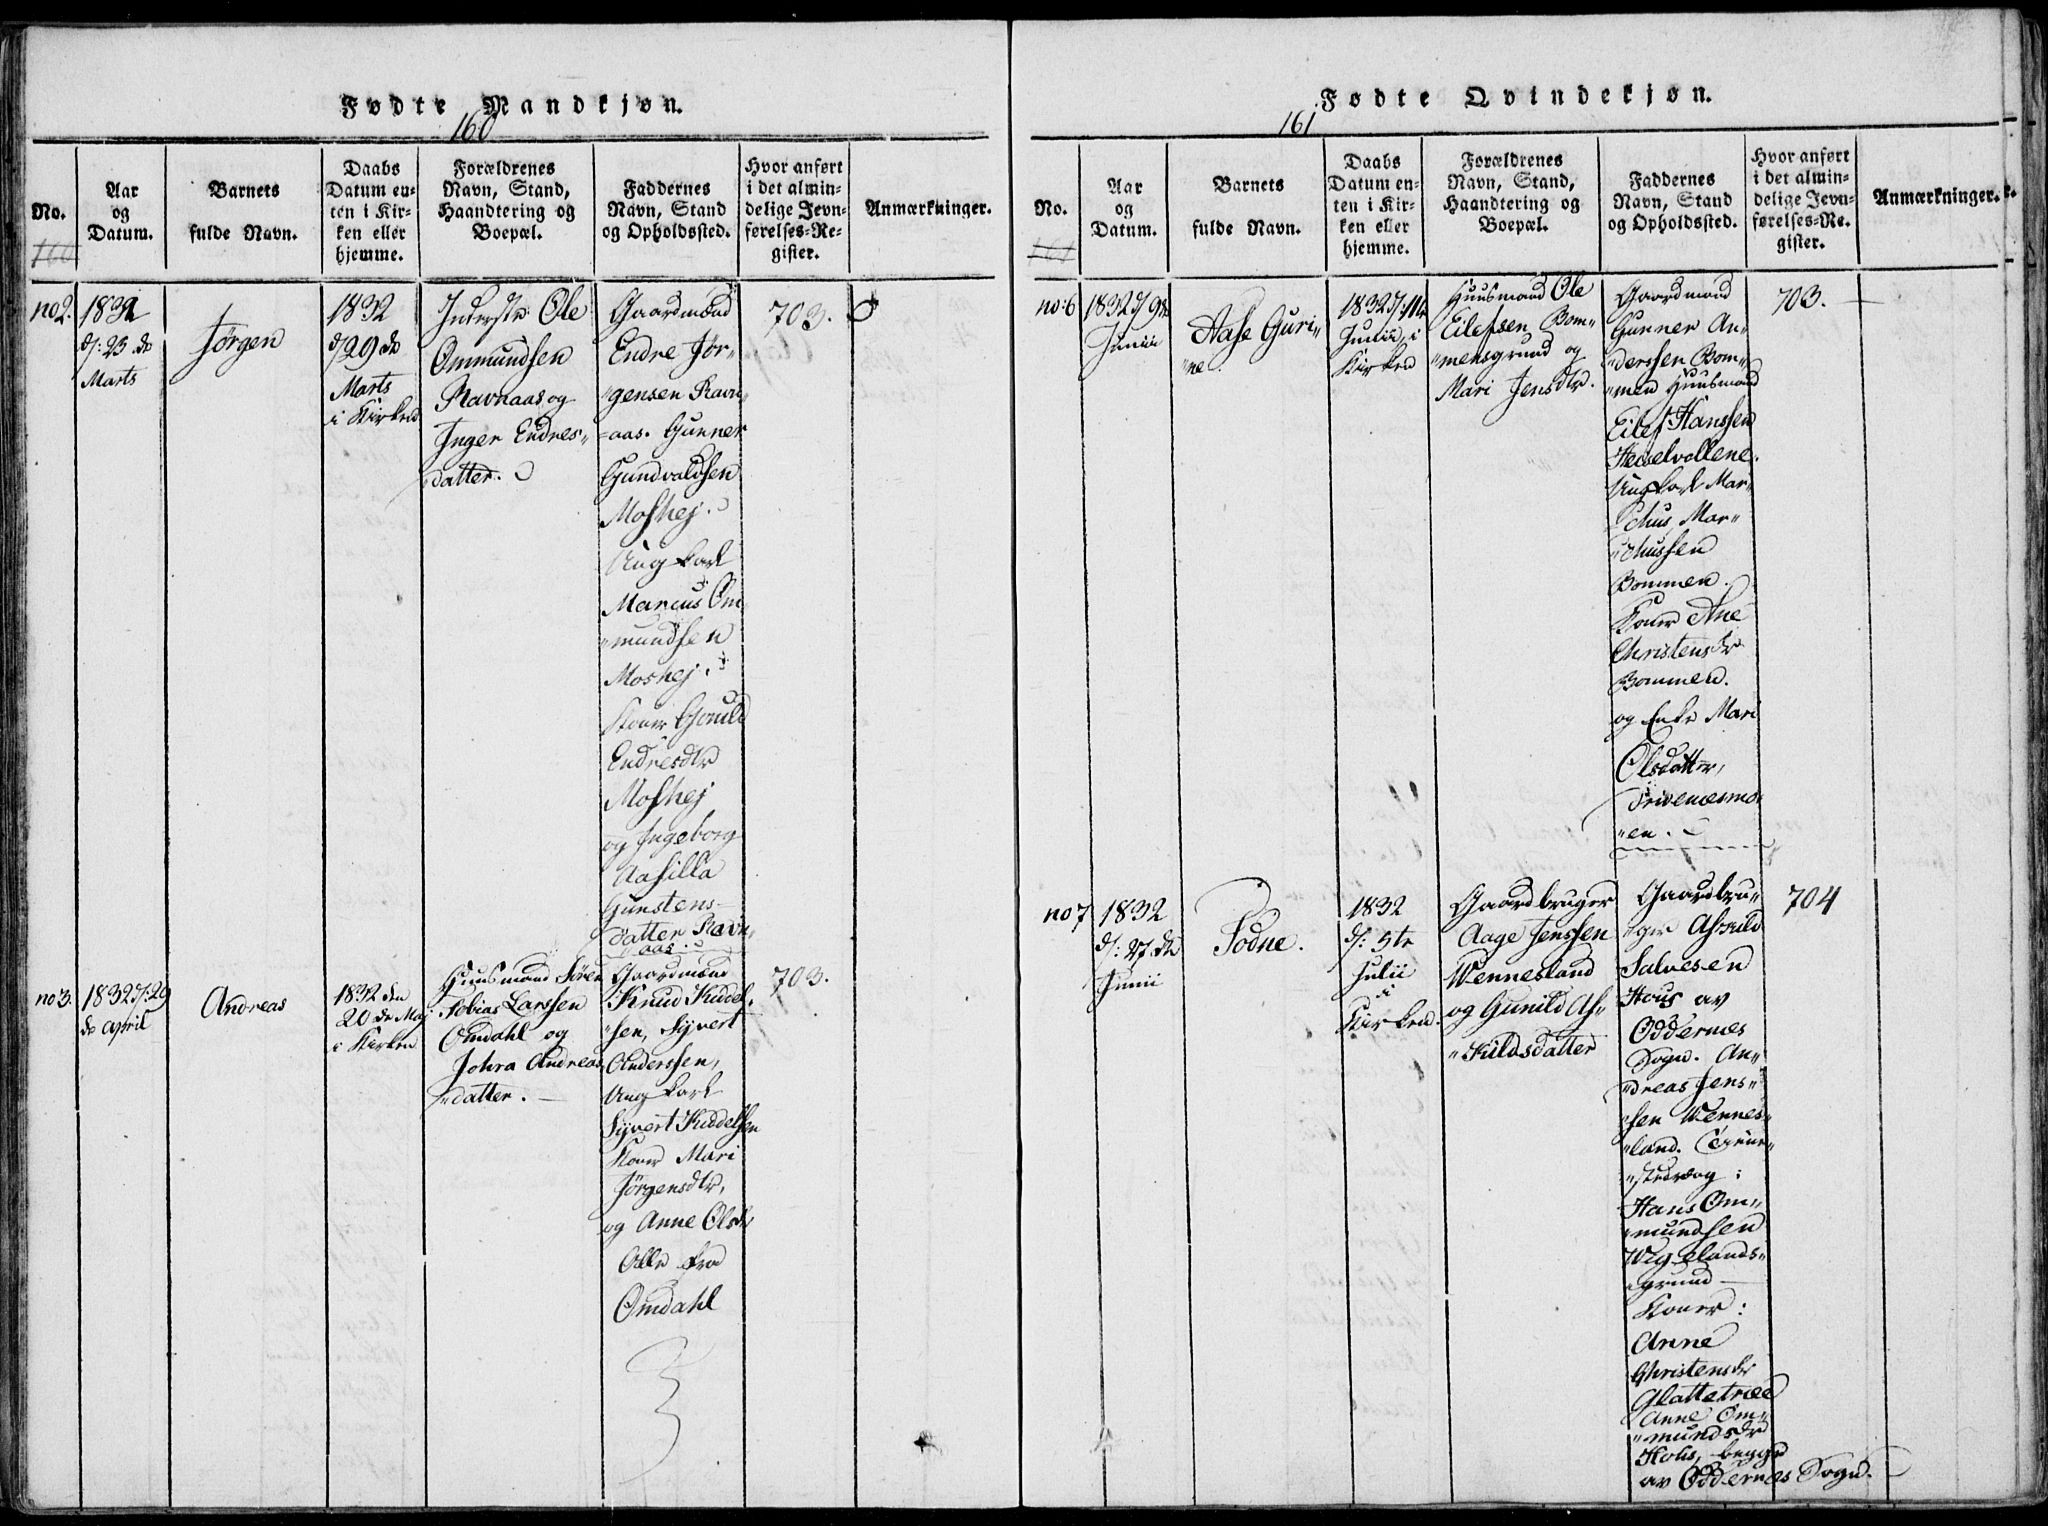 Fødte Mandkjøn.
160
No.
160
Aar
og
Datum.
Barnets
fulde Navn.
Daabs
Datum en-
ten i Kir-
ken eller
hjemme.
Forældrenes
Navn, Stand,
Haandtering og
Boepæl.
Faddernes
Navn, Stand
og Opholdssted.
Hvor anført
i det almin-
delige Jevn-
førelses-Re-
gister.
Anmærkninger.
no 2.
1832
d: 23 de
Marts
Jørgen
1832
d/29 de
Marts
i Kirken
Inderste Ole
Ommundsen
Ravnaas og
Inger Endres-
datter.
Gaardmænd
Endre Jør-
"gensen Ravn-
=aas. Gunner
Gundvaldsen
Moshej.
Ungkarl
Marcus Om
"mundsen
Moshej.
Koner Gonild
Endresdtr
Moshej
og Ingeborg
Aasilla
Gunstens-
datter Ravn-
aas.
703.
no 3.
1832 d: 29
de April
Andreas
1832 den
20 de Maj
i Kirken
Huusmand Sören
Tobias Larssen
Omdahl og
Johra Andreas
"datter.
Gaardmænd
Knud Kiddel-
"sen, Syvert
Anderssen,
Ungkarl
Syvert Kiddelsen
Koner Mari
Jörgensdtr,
og Anne Olsdr
Alle fra
Omdahl
703.
Fødte Qvindekjøn.
161
No.
161
Aar
og
Datum.
Barnets
fulde Navn.
Daabs
Datum en-
ten i Kir-
ken eller
hjemme.
Forældrenes
Navn, Stand,
Haandtering og
Boepæl.
Faddernes
Navn, Stand
og Opholdssted.
Hvor anført
i det almin-
delige Jevn-
førelses-Re-
gister.
Anmærkninger.
no: 6
1832 d/9de
Junii
Aase Guri-
"ne
1832 d:
Junii, i
Kirken
Huusmand Ole
Eilefsen Bom-
"mensgrund og
Mari Jensdtr.
Gaardmand
Gunner An-
"derssen Bom-
"men Huusmand
Eilef Hanssen
Hesselvollene.
Ungkarl Mar-
"chus Mar-
"chussen
Bommen.
Koner Ane
Christensdr
Bommen.
og Enke Mari
Olsdatter,
"en.
703.
no 7
1832
d: 27. de
Junii
Todne.
1832
d: 5te
Julii
i
Kirken.
Gaardbruger
Aage Jenssen
Wennesland
og Gunild As-
"kildsdatter
Gaardbru-
"ger Askild
Salvesen
Hous av
Oddernes
Sogn. An-
"dreas Jens-
sen Wennes-
"land.
Hans Om-
"mundsen
Wigelands-
grund
Koner:
Anne
Christensdr
Glattetræe
Anne Om-
"mundsdr
Hous, begge
av Oddernes Sogn.
704